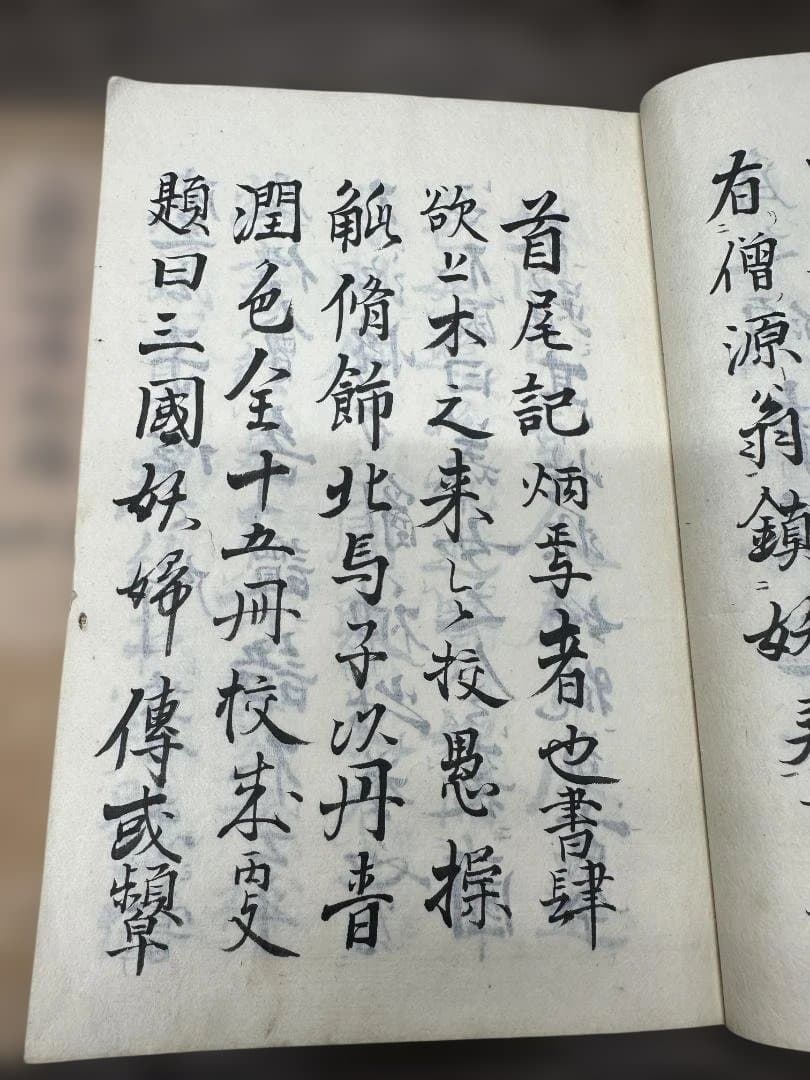 有僧源翁鎮妖
首尾記炳焉者也書肆
欲上木之来校愚操
觚脩飾北馬子以丹青
潤色全十五冊校成㪅
題曰三國妖婦傳或顰